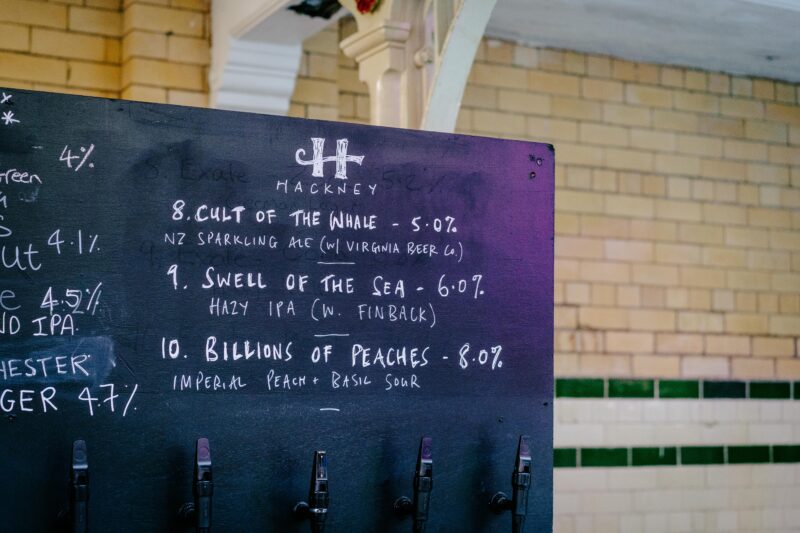 4%
Green
4.1%
4.5%
IPA
4.7%
H
HACKNEY
8. CULT OF THE WHALE - 5.0%
NZ SPARKLING ALE (W/ VIRGINIA BEER CO.)
9. SWELL OF THE SEA - 6.0%
HAZY IPA (W. FINBACK)
10. BILLIONS OF PEACHES - 8.0%
IMPERIAL PEACH + BASIL SOUR